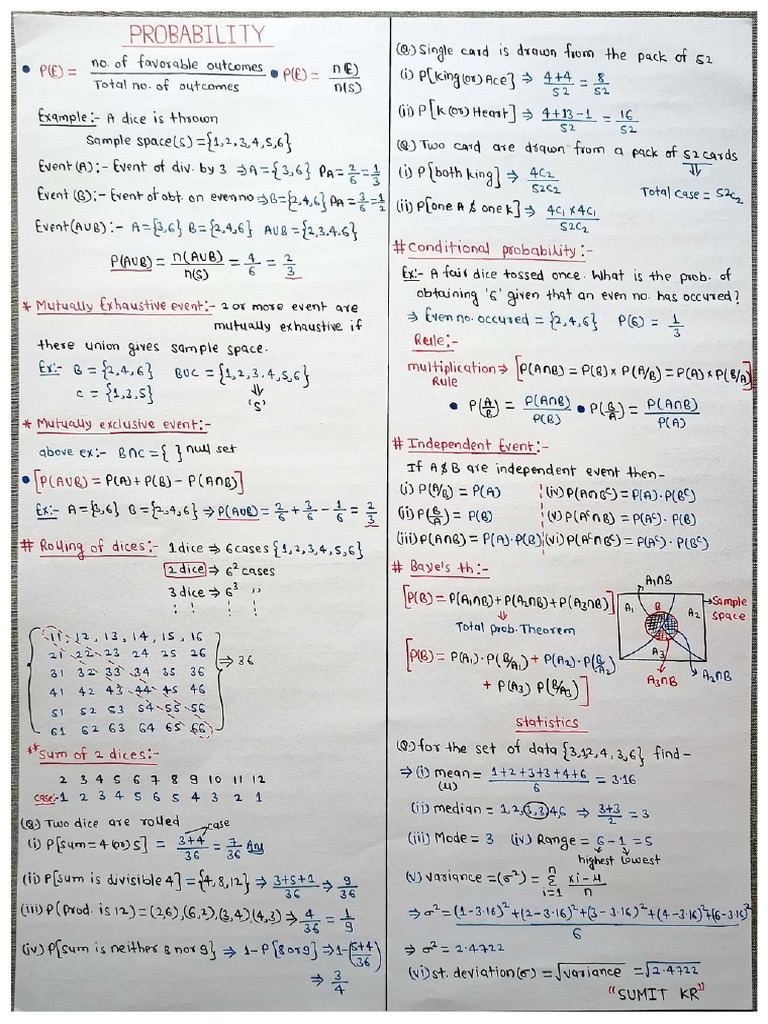 PROBABILITY
• P(E) = no. of favorable outcomes / Total no. of outcomes • P(E) = n(E) / n(S)
Example:- A dice is thrown
Sample space(s) = {1,2,3,4,5,6}
Event(A):- Event of div. by 3 ⇒ A = {3,6} PA = 2/6 = 1/3
Event (B):- Event of obt. on even no ⇒ B = {2,4,6} PA = 3/6 = 1/2
Event(AUB):- A={3,6} B={2,4,6} AUB = {2,3,4,6}
P(AUB) = n(AUB) / n(S) = 4/6 = 2/3
* Mutually Exhaustive event:- 2 or more event are
mutually exhaustive if
there union gives sample space.
Ex:- B = {2,4,6} BUC = {1,2,3,4,5,6}
C = {1,3,5} ⇓
'S'
* Mutually exclusive event:-
above ex:- B∩C = { } null set
• [P(AUB) = P(A) + P(B) - P(A∩B)]
Ex:- A={3,6} B={2,4,6} ⇒ P(AUB) = 2/6 + 3/6 - 1/6 = 2/3
# Rolling of dices:- 1 dice ⇒ 6 cases {1,2,3,4,5,6}
2 dice ⇒ 6² cases
3 dice ⇒ 6³ ,,
11, 12, 13, 14, 15, 16
21 22 23 24 25 26
31 32 33 34 35 36 ⇒ 36
41 42 43 44 45 46
51 52 53 54 55 56
61 62 63 64 65 66
** Sum of 2 dices:-
2 3 4 5 6 7 8 9 10 11 12
case:- 1 2 3 4 5 6 5 4 3 2 1
(Q.) Two dice are rolled case
(i) P[sum = 4 (or) 5] = 3+4 / 36 = 7/36 Ans
(ii) P[sum is divisible 4] = {4,8,12} ⇒ 3+5+1 / 36 ⇒ 9/36
(iii) P(Prod. is 12) = (2,6), (6,2), (3,4), (4,3) ⇒ 4/36 = 1/9
(iv) P[sum is neither 8 nor 9] ⇒ 1-P[8 or 9] ⇒ 1-(5+4 / 36)
⇒ 3/4
(Q.) Single card is drawn from the pack of 52
(i) P[king (or) Ace] ⇒ 4+4 / 52 = 8/52
(ii) P[K (or) Heart] ⇒ 4+13-1 / 52 = 16/52
(Q.) Two card are drawn from a pack of 52 cards
(i) P[both king] ⇒ 4C2 / 52C2 ⇓ Total case = 52C2
(ii) P[one A & one K] ⇒ 4C1 × 4C1 / 52C2
# Conditional probability:-
Ex:- A fair dice tossed once. What is the prob. of
obtaining '6' given that an even no. has occured?
⇒ Even no. occured = {2,4,6} P(6) = 1/3
Rule:-
multiplication ⇒ [P(A∩B) = P(B) × P(A/B) = P(A) × P(B/A)]
Rule
• P(A/B) = P(A∩B) / P(B) • P(B/A) = P(A∩B) / P(A)
# Independent Event:-
If A & B are independent event then-
(i) P(A/B) = P(A) (iv) P(A∩Bᶜ) = P(A).P(Bᶜ)
(ii) P(B/A) = P(B) (v) P(Aᶜ∩B) = P(Aᶜ).P(B)
(iii) P(A∩B) = P(A).P(B) (vi) P(Aᶜ∩Bᶜ) = P(Aᶜ).P(Bᶜ)
# Baye's th:-
[P(B) = P(A1∩B) + P(A2∩B) + P(A3∩B)]
↓
Total prob. Theorem
[P(B) = P(A1).P(B/A1) + P(A2).P(B/A2)
+ P(A3) P(B/A3)]
A1∩B
A1 B A2 → Sample space
A3
A3∩B A2∩B
Statistics
(Q.) for the set of data {3,1,2,4,3,6} find-
⇒ (i) mean = 1+2+3+3+4+6 / 6 = 3.16
(μ)
(ii) median = 1,2,(3,3)4,6 ⇒ 3+3 / 2 = 3
(iii) Mode = 3 (iv) Range = 6-1 = 5
highest lowest
(v) variance = (σ²) = Σ n i=1 xi-μ / n
⇒ σ² = (1-3.16)² + (2-3.16)² + (3-3.16)² + (4-3.16)² + (6-3.16)² / 6
⇒ σ² = 2.4722
(vi) st. deviation (σ) = √variance = √2.4722
"SUMIT KR"